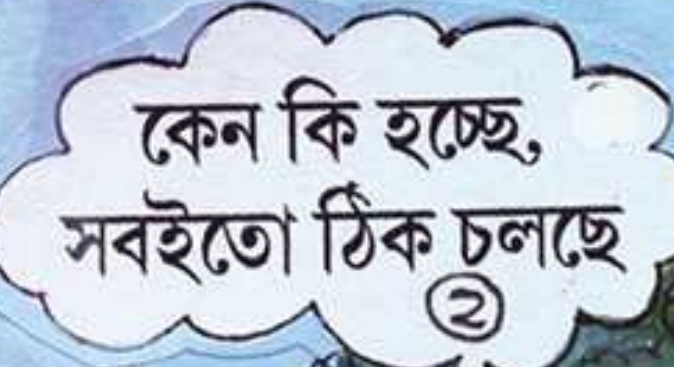 কেন কি হচ্ছে,
সবইতো ঠিক চলছে
২